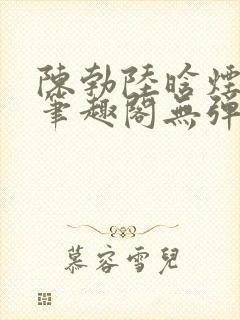 陳勃陸晗煙
筆趣閣無彈
慕容雪兒